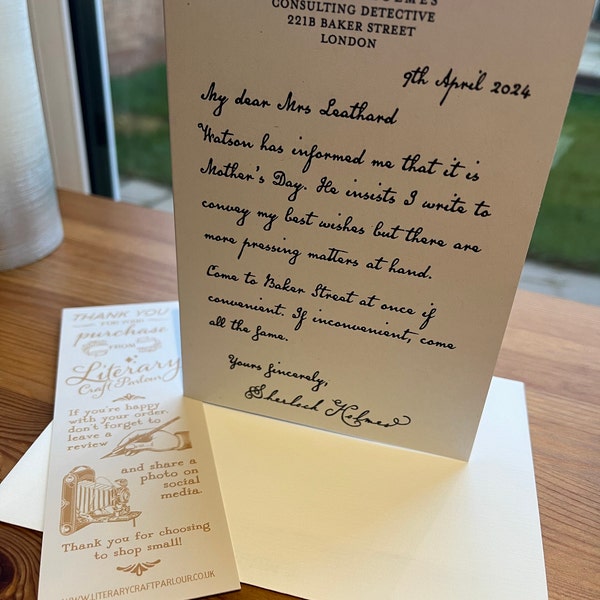 CONSULTING DETECTIVE
221B BAKER STREET
LONDON
9th April 2024
My dear Mrs Leathard
Watson has informed me that it is
Mother's Day. He insists I write to
convey my best wishes but there are
more pressing matters at hand.
Come to Baker Street at once if
convenient. If inconvenient, come
all the same.
Yours sincerely,
Sherlock Holmes
THANK YOU
FOR YOUR
purchase
FROM
Literary
Craft Parlour
If you're happy
with your order,
don't forget to
leave a
review
and share a
photo on
social
media.
Thank you for choosing
to shop small!
WWW.LITERARYCRAFTPARLOUR.CO.UK